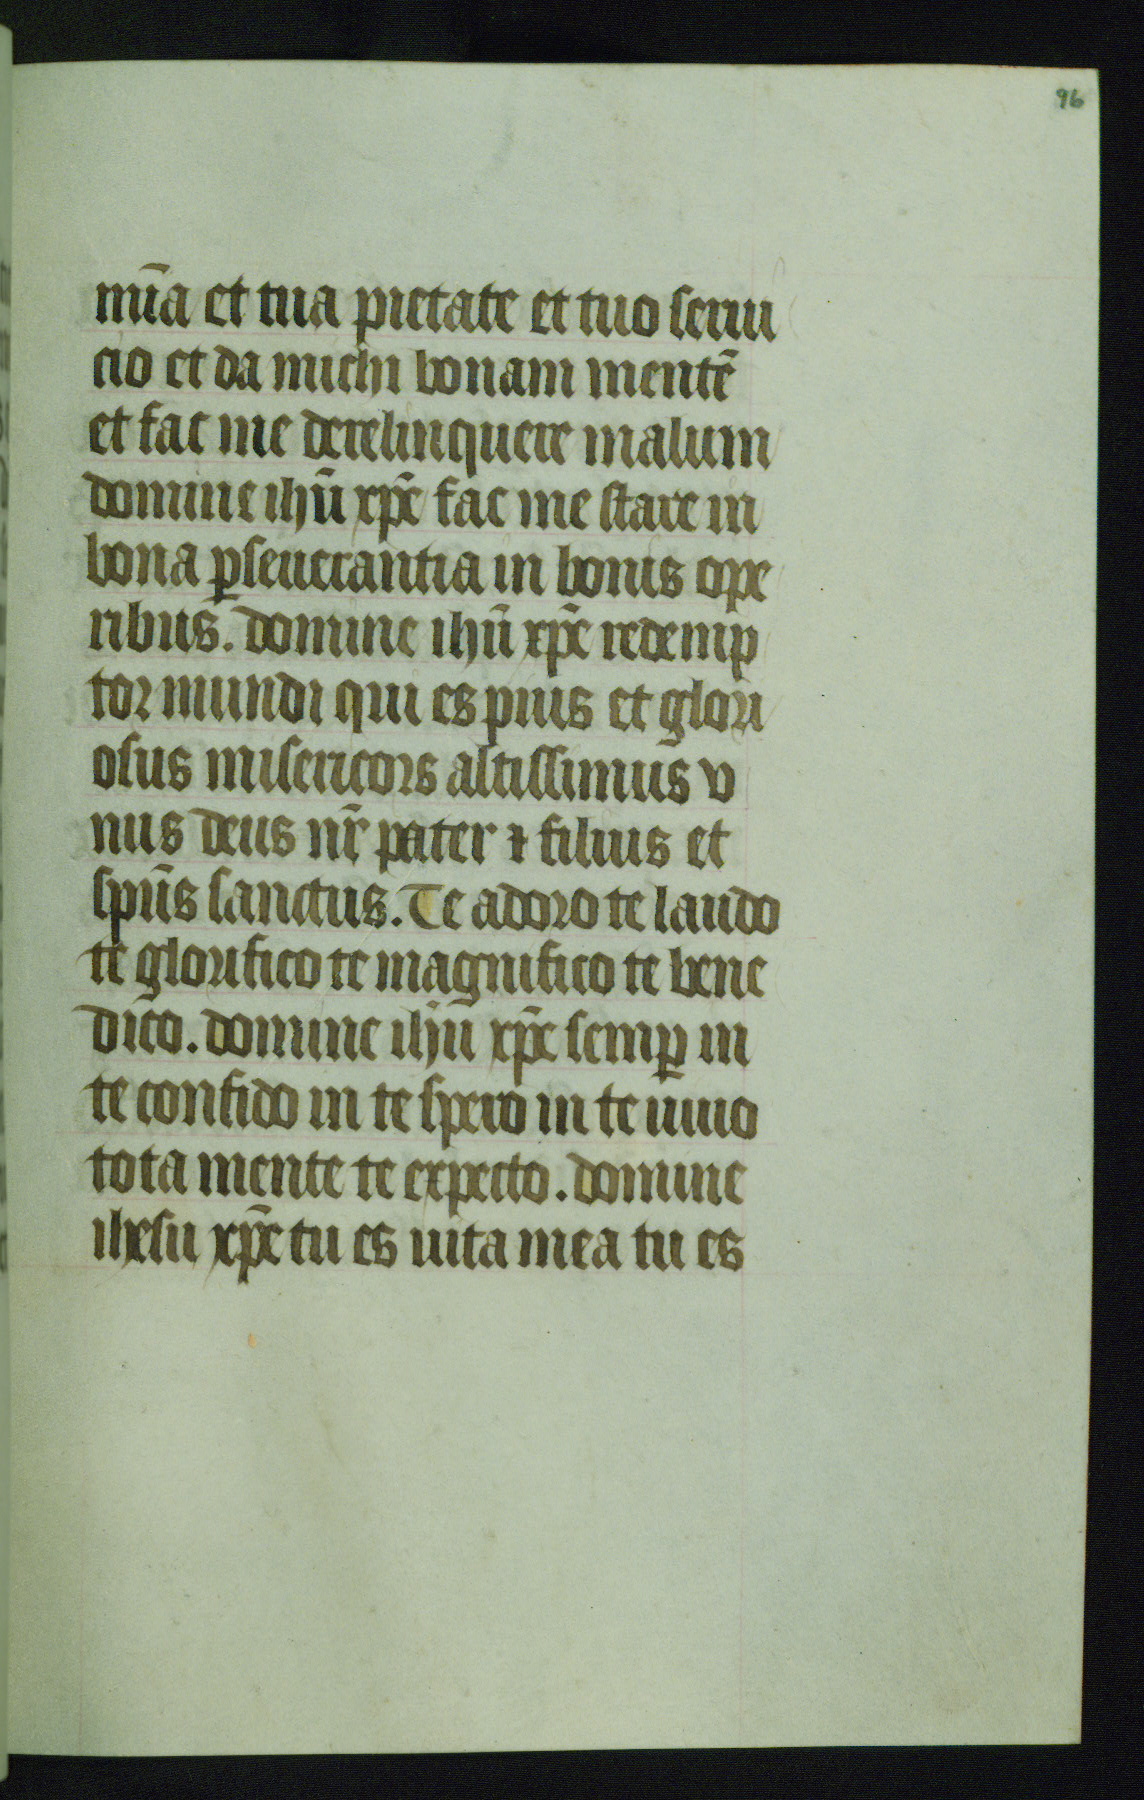 96
mīa et tua pietate et tuo serui
cio et da michi bonam mentē
et fac me derelinquere malum
domine ihū xp̄e fac me stare in
bona ꝑseuerantia in bonis ope
ribus. domine ihū xp̄e redemp
tor mundi qui es pius et glori
osus misericors altissimus v
nus deus nr̄ pater ⁊ filius et
spūs sanctus. Te adoro te laudo
te glorifico te magnifico te bene
dico. domine ihū xp̄e semꝑ in
te confido in te spero in te uiuo
tota mente te expecto. domine
ihesu xp̄e tu es uita mea tu es